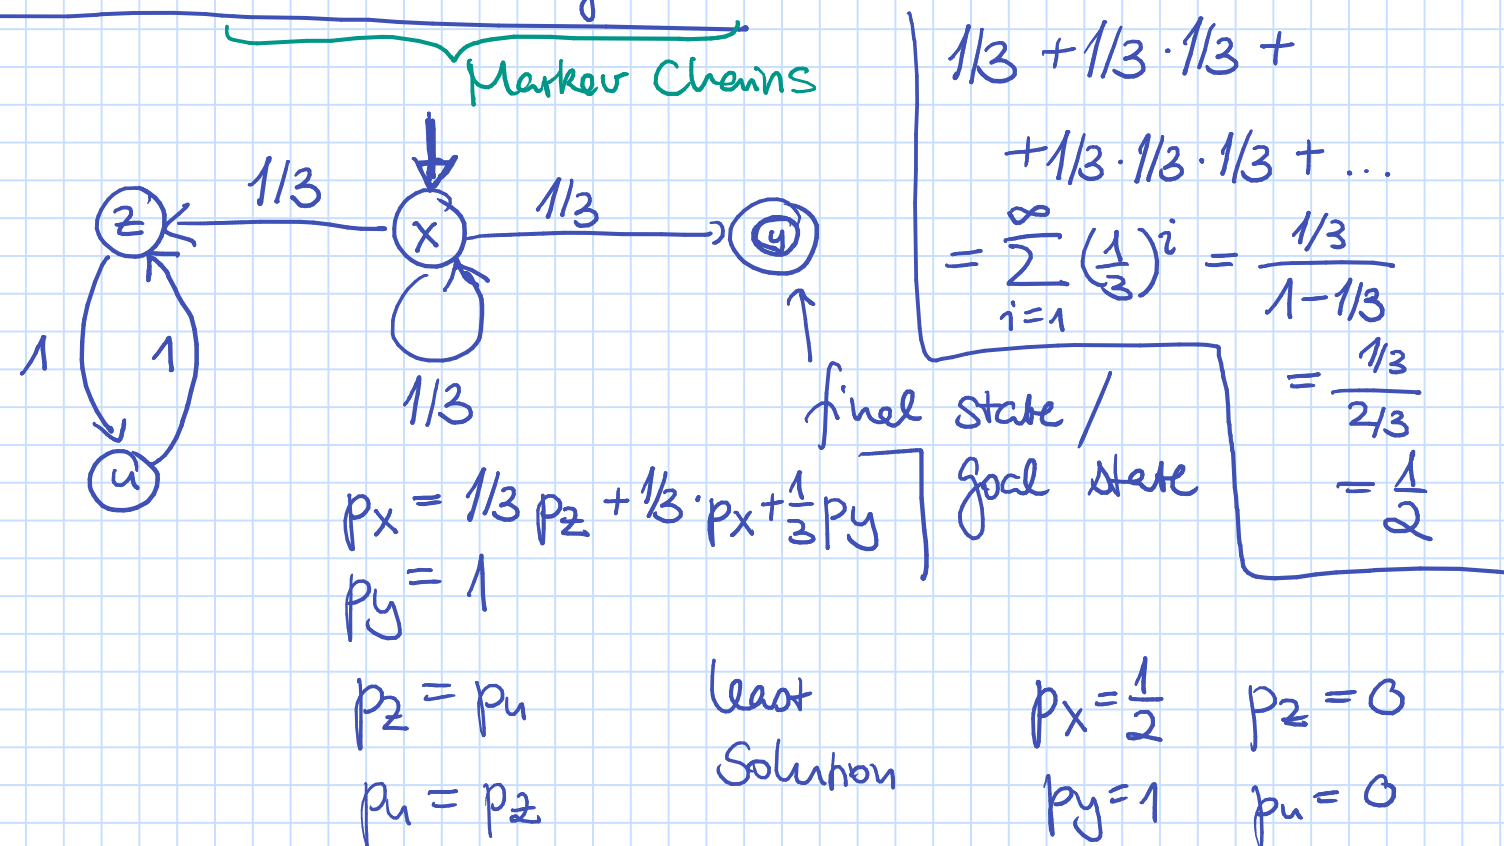 Markov Chains
1/3 + 1/3 · 1/3 +
+ 1/3 · 1/3 · 1/3 + ...
= ∑_{i=1}^{∞} (1/3)^i = (1/3)/(1 - 1/3)
= (1/3)/(2/3)
= 1/2
1/3
1/3
z
x
y
1
1
1/3
u
final state /
goal state
px = 1/3 pz + 1/3 · px + 1/3 py
py = 1
pz = pu
pu = pz
least
solution
px = 1/2 pz = 0
py = 1 pu = 0